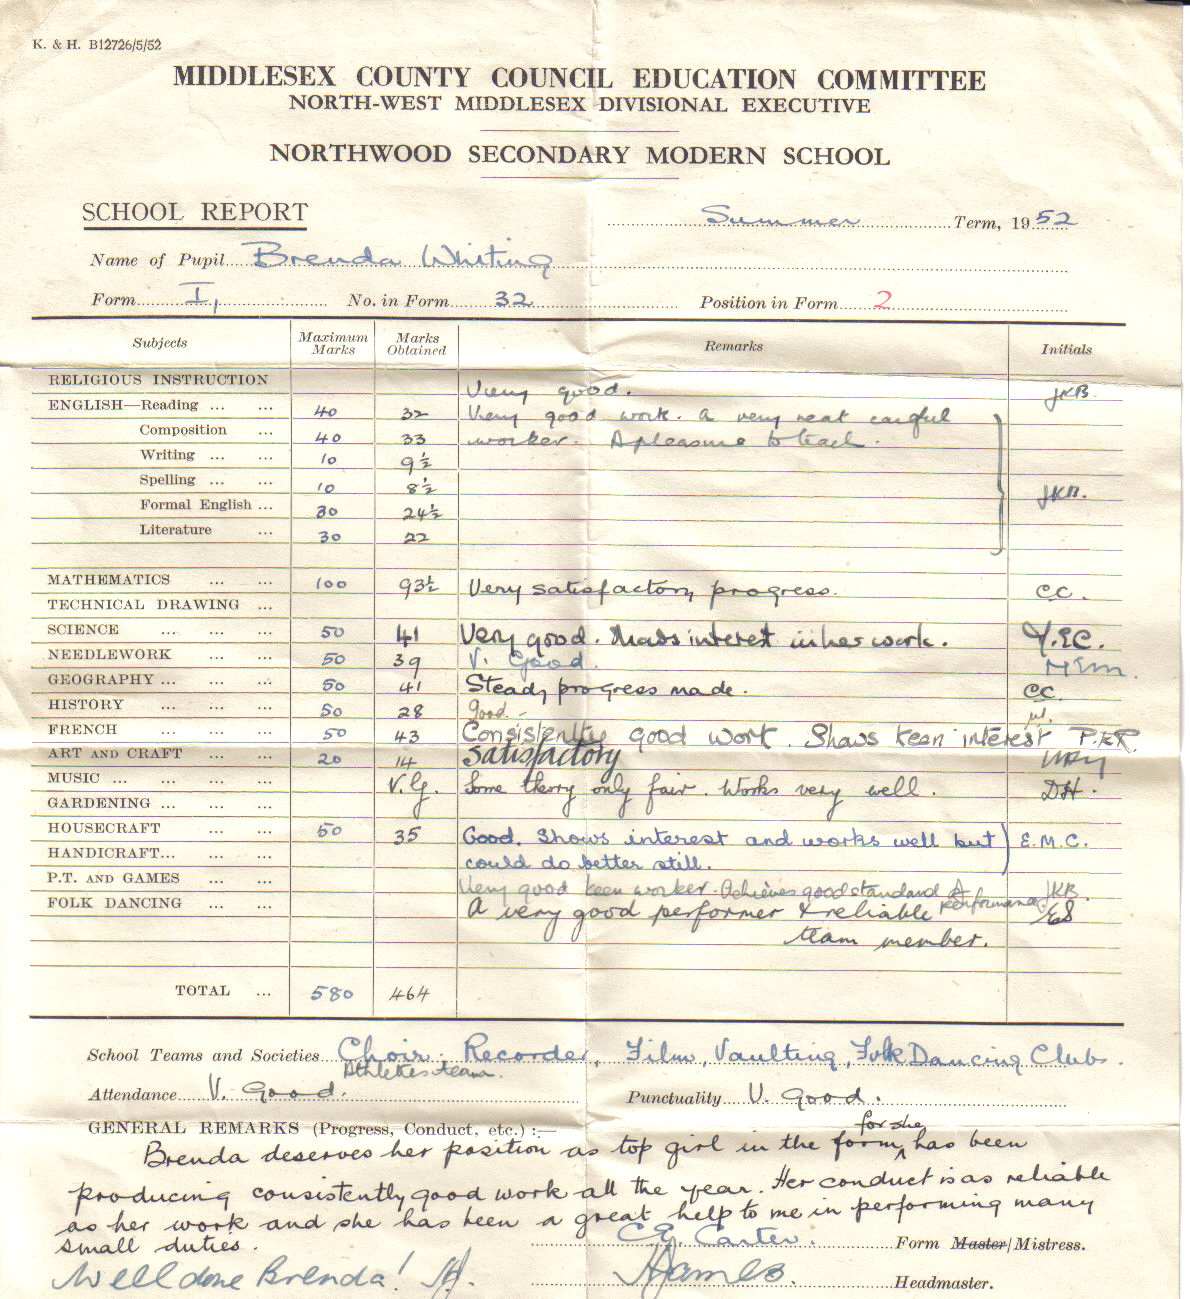 K. & H. B12726/5/52
MIDDLESEX COUNTY COUNCIL EDUCATION COMMITTEE
NORTH-WEST MIDDLESEX DIVISIONAL EXECUTIVE
NORTHWOOD SECONDARY MODERN SCHOOL
SCHOOL REPORT Summer Term, 1952
Name of Pupil Brenda Whiting
Form I, No. in Form 32 Position in Form 2
Subjects Maximum Marks Marks Obtained Remarks Initials
RELIGIOUS INSTRUCTION Very good. JKB
ENGLISH—Reading ... ... 40 32 Very good work. A very neat careful
Composition ... 40 33 worker. A pleasure to teach.
Writing ... ... 10 9½
Spelling ... ... 10 8½ JKB.
Formal English ... 30 24½
Literature ... 30 22
MATHEMATICS ... ... 100 93½ Very satisfactory progress. CC.
TECHNICAL DRAWING ...
SCIENCE ... ... ... 50 41 Very good. Much interest in her work. Y.EC.
NEEDLEWORK ... ... 50 39 V. Good.
GEOGRAPHY ... ... ... 50 41 Steady progress made. CC.
HISTORY ... ... ... 50 28 Good.
FRENCH ... ... ... 50 43 Consistently good work. Shows keen interest P.E.R.
ART AND CRAFT ... ... 20 14 Satisfactory
MUSIC ... ... ... ... V.G. Some theory only fair. Works very well. DH.
GARDENING ... ... ...
HOUSECRAFT ... ... 50 35 Good. Shows interest and works well but E.M.C.
HANDICRAFT... ... ... could do better still.
P.T. AND GAMES ... ... Very good keen worker. Achieves good standard of performance. JKB.
FOLK DANCING ... ... A very good performer & reliable ES
team member.
TOTAL ... 580 464
School Teams and Societies Choir. Recorder, Film, Vaulting, Folk Dancing Clubs.
Athletics team.
Attendance V. Good. Punctuality V. good.
GENERAL REMARKS (Progress, Conduct, etc.) :—
Brenda deserves her position as top girl in the form for she has been
producing consistently good work all the year. Her conduct is as reliable
as her work and she has been a great help to me in performing many
small duties. C E Carter. Form Master/Mistress.
Well done Brenda! Headmaster.